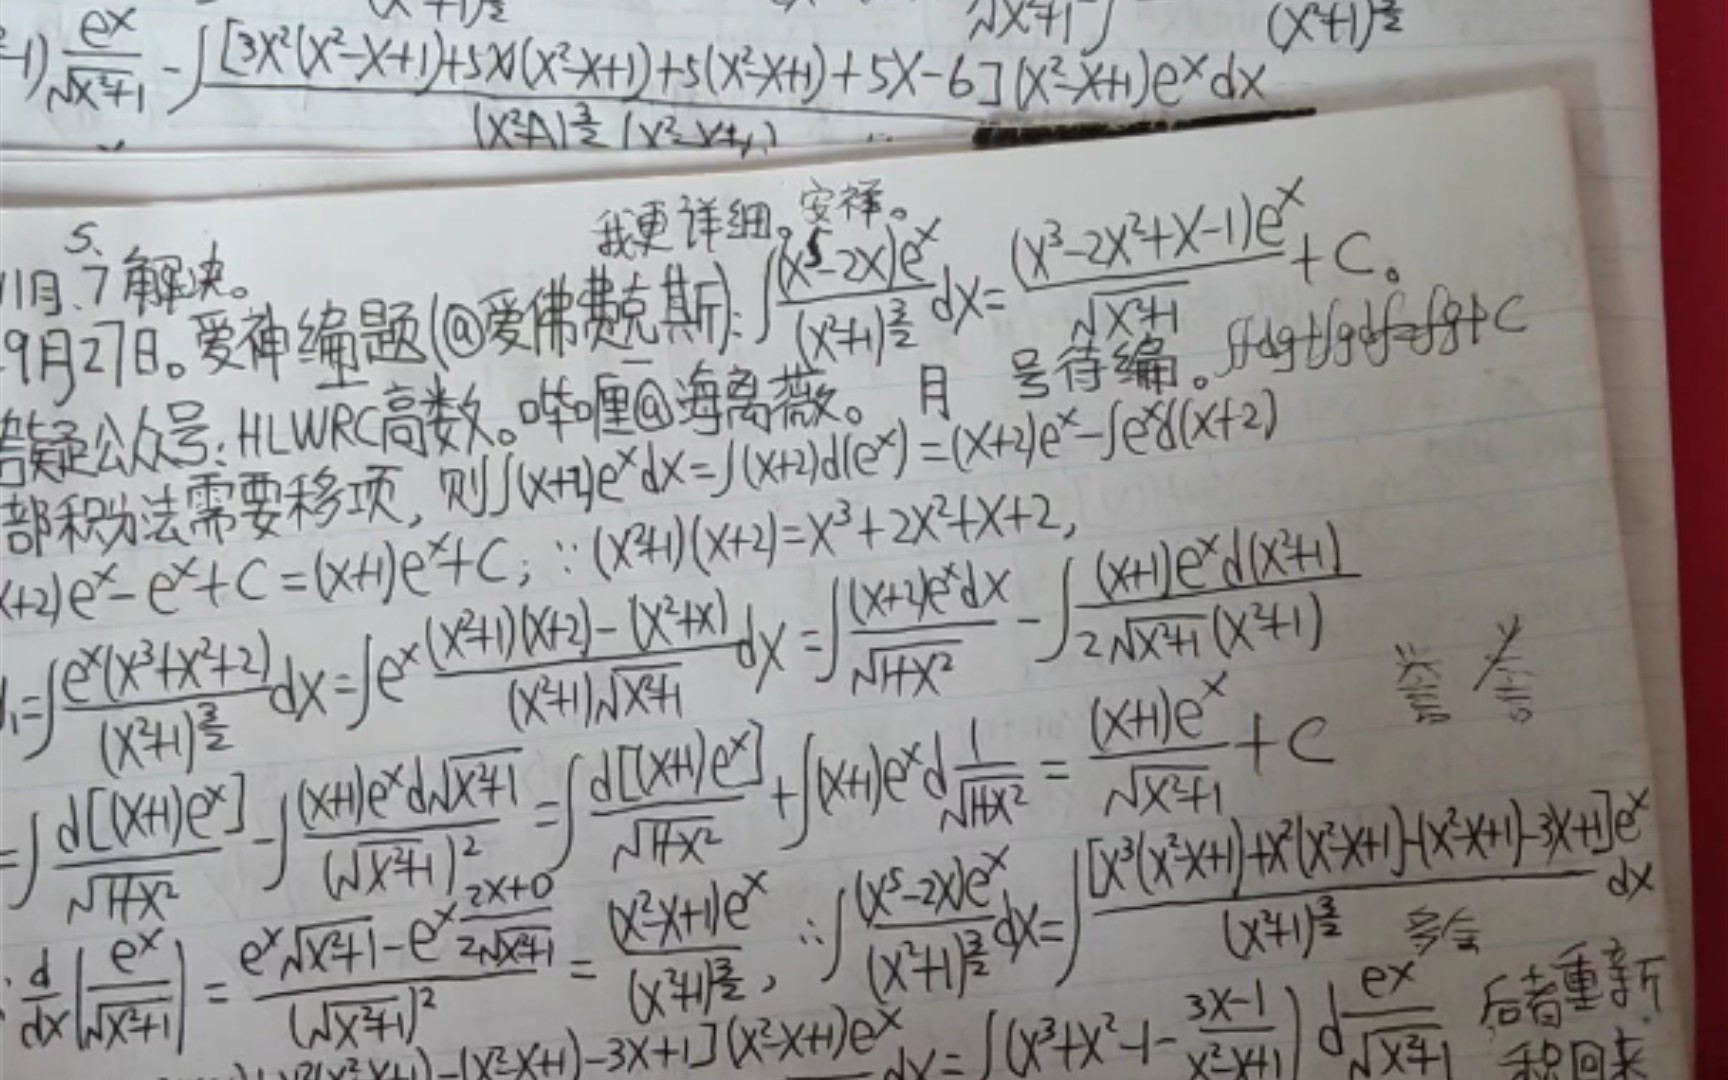 -1) e^x/√(x²+1) - ∫ [3x²(x²-x+1)+5x(x²-x+1)+5(x²-x+1)+5x-6](x²-x+1)e^x dx
我更详细。安祥。
11月.7解决。
9月27日。爱神编题(@爱佛费克斯): ∫ (x⁵-2x)e^x/(x²+1)^(3/2) dx = (x³-2x²+x-1)e^x/√(x²+1) + C。
答疑公众号:HLWRC高数。哔哩@海离薇。 月 号待编。∫fdg+∫gdf=fg+C
部积分法需要移项, 则∫(x+2)e^x dx=∫(x+2)d(e^x)=(x+2)e^x-∫e^x d(x+2)
x+2)e^x-e^x+C=(x+1)e^x+C; ∵(x²+1)(x+2)=x³+2x²+x+2,
=∫ e^x(x³+x²+2)/(x²+1)^(3/2) dx = ∫e^x ((x²+1)(x+2)-(x²+x))/((x²+1)√(x²+1)) dx = ∫ (x+2)e^x dx/√(1+x²) - ∫ (x+1)e^x d(x²+1)/(2√(x²+1)(x²+1))
=∫ d[(x+1)e^x]/√(1+x²) - ∫ (x+1)e^x d√(x²+1)/(√(x²+1))² = ∫ d[(x+1)e^x]/√(1+x²) + ∫(x+1)e^x d 1/√(1+x²) = (x+1)e^x/√(x²+1) + C
d/dx (e^x/√(x²+1)) = (e^x√(x²+1) - e^x (2x+0)/(2√(x²+1)))/(√(x²+1))² = (x²-x+1)e^x/(x²+1)^(3/2), ∴∫ (x⁵-2x)e^x/(x²+1)^(3/2) dx = ∫ [x³(x²-x+1)+x²(x²-x+1)-(x²-x+1)-3x+1]e^x/(x²+1)^(3/2) dx
-(x²-x+1)-3x+1](x²-x+1)e^x dx = ∫(x³+x²-1-(3x-1)/(x²-x+1)) d e^x/√(x²+1)
后者重新
积回来